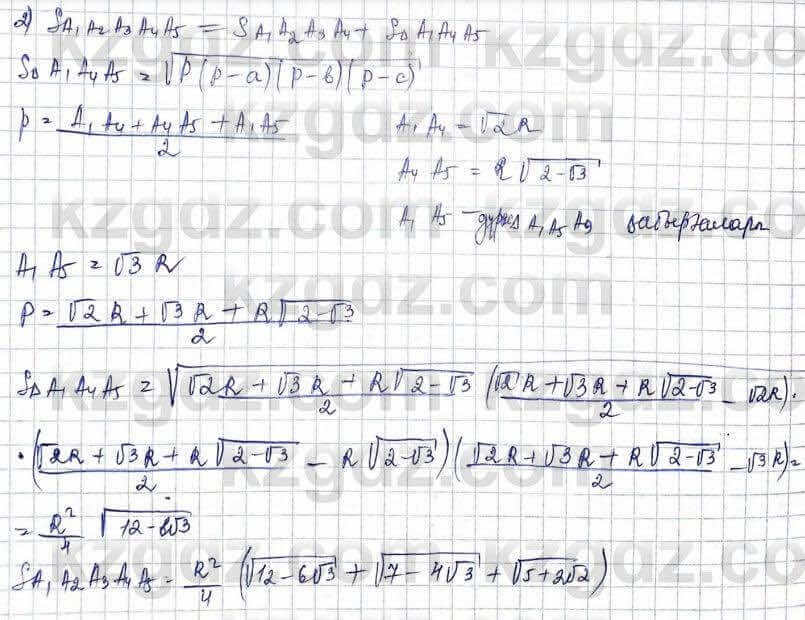 2) S A₁A₂A₃A₄A₅ = S A₁A₂A₃A₄ + SΔ A₁A₄A₅
SΔ A₁A₄A₅ = √(P(P-a)(P-b)(P-c))
P = (A₁A₄ + A₄A₅ + A₁A₅)/2 A₁A₄ = √2R
A₄A₅ = R√(2-√3)
A₁A₅ - A₁A₅A₉
A₁A₅ = √3 R
P = (√2 R + √3 R + R√(2-√3))/2
SΔ A₁A₄A₅ = √((√2R + √3 R + R√(2-√3))/2 ((√2R + √3R + R√(2-√3))/2 - √2R) ·
· ((√2R + √3R + R√(2-√3))/2 - R√(2-√3)) ((√2R + √3R + R√(2-√3))/2 - √3R) =
= R²/4 √(12-6√3)
S A₁A₂A₃A₄A₅ = R²/4 (√(12-6√3) + √(7-4√3) + √(5+2√2))
kzgdz.com